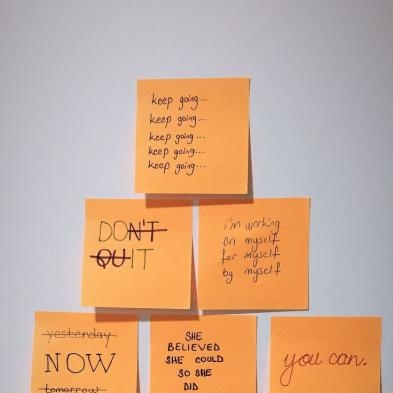 keep going...
keep going...
keep going...
keep going...
keep going...
DON'T
QUIT
i'm working
on myself
for myself
by myself
yesterday
NOW
tomorrow
SHE
BELIEVED
SHE COULD
SO SHE
DID
you can.